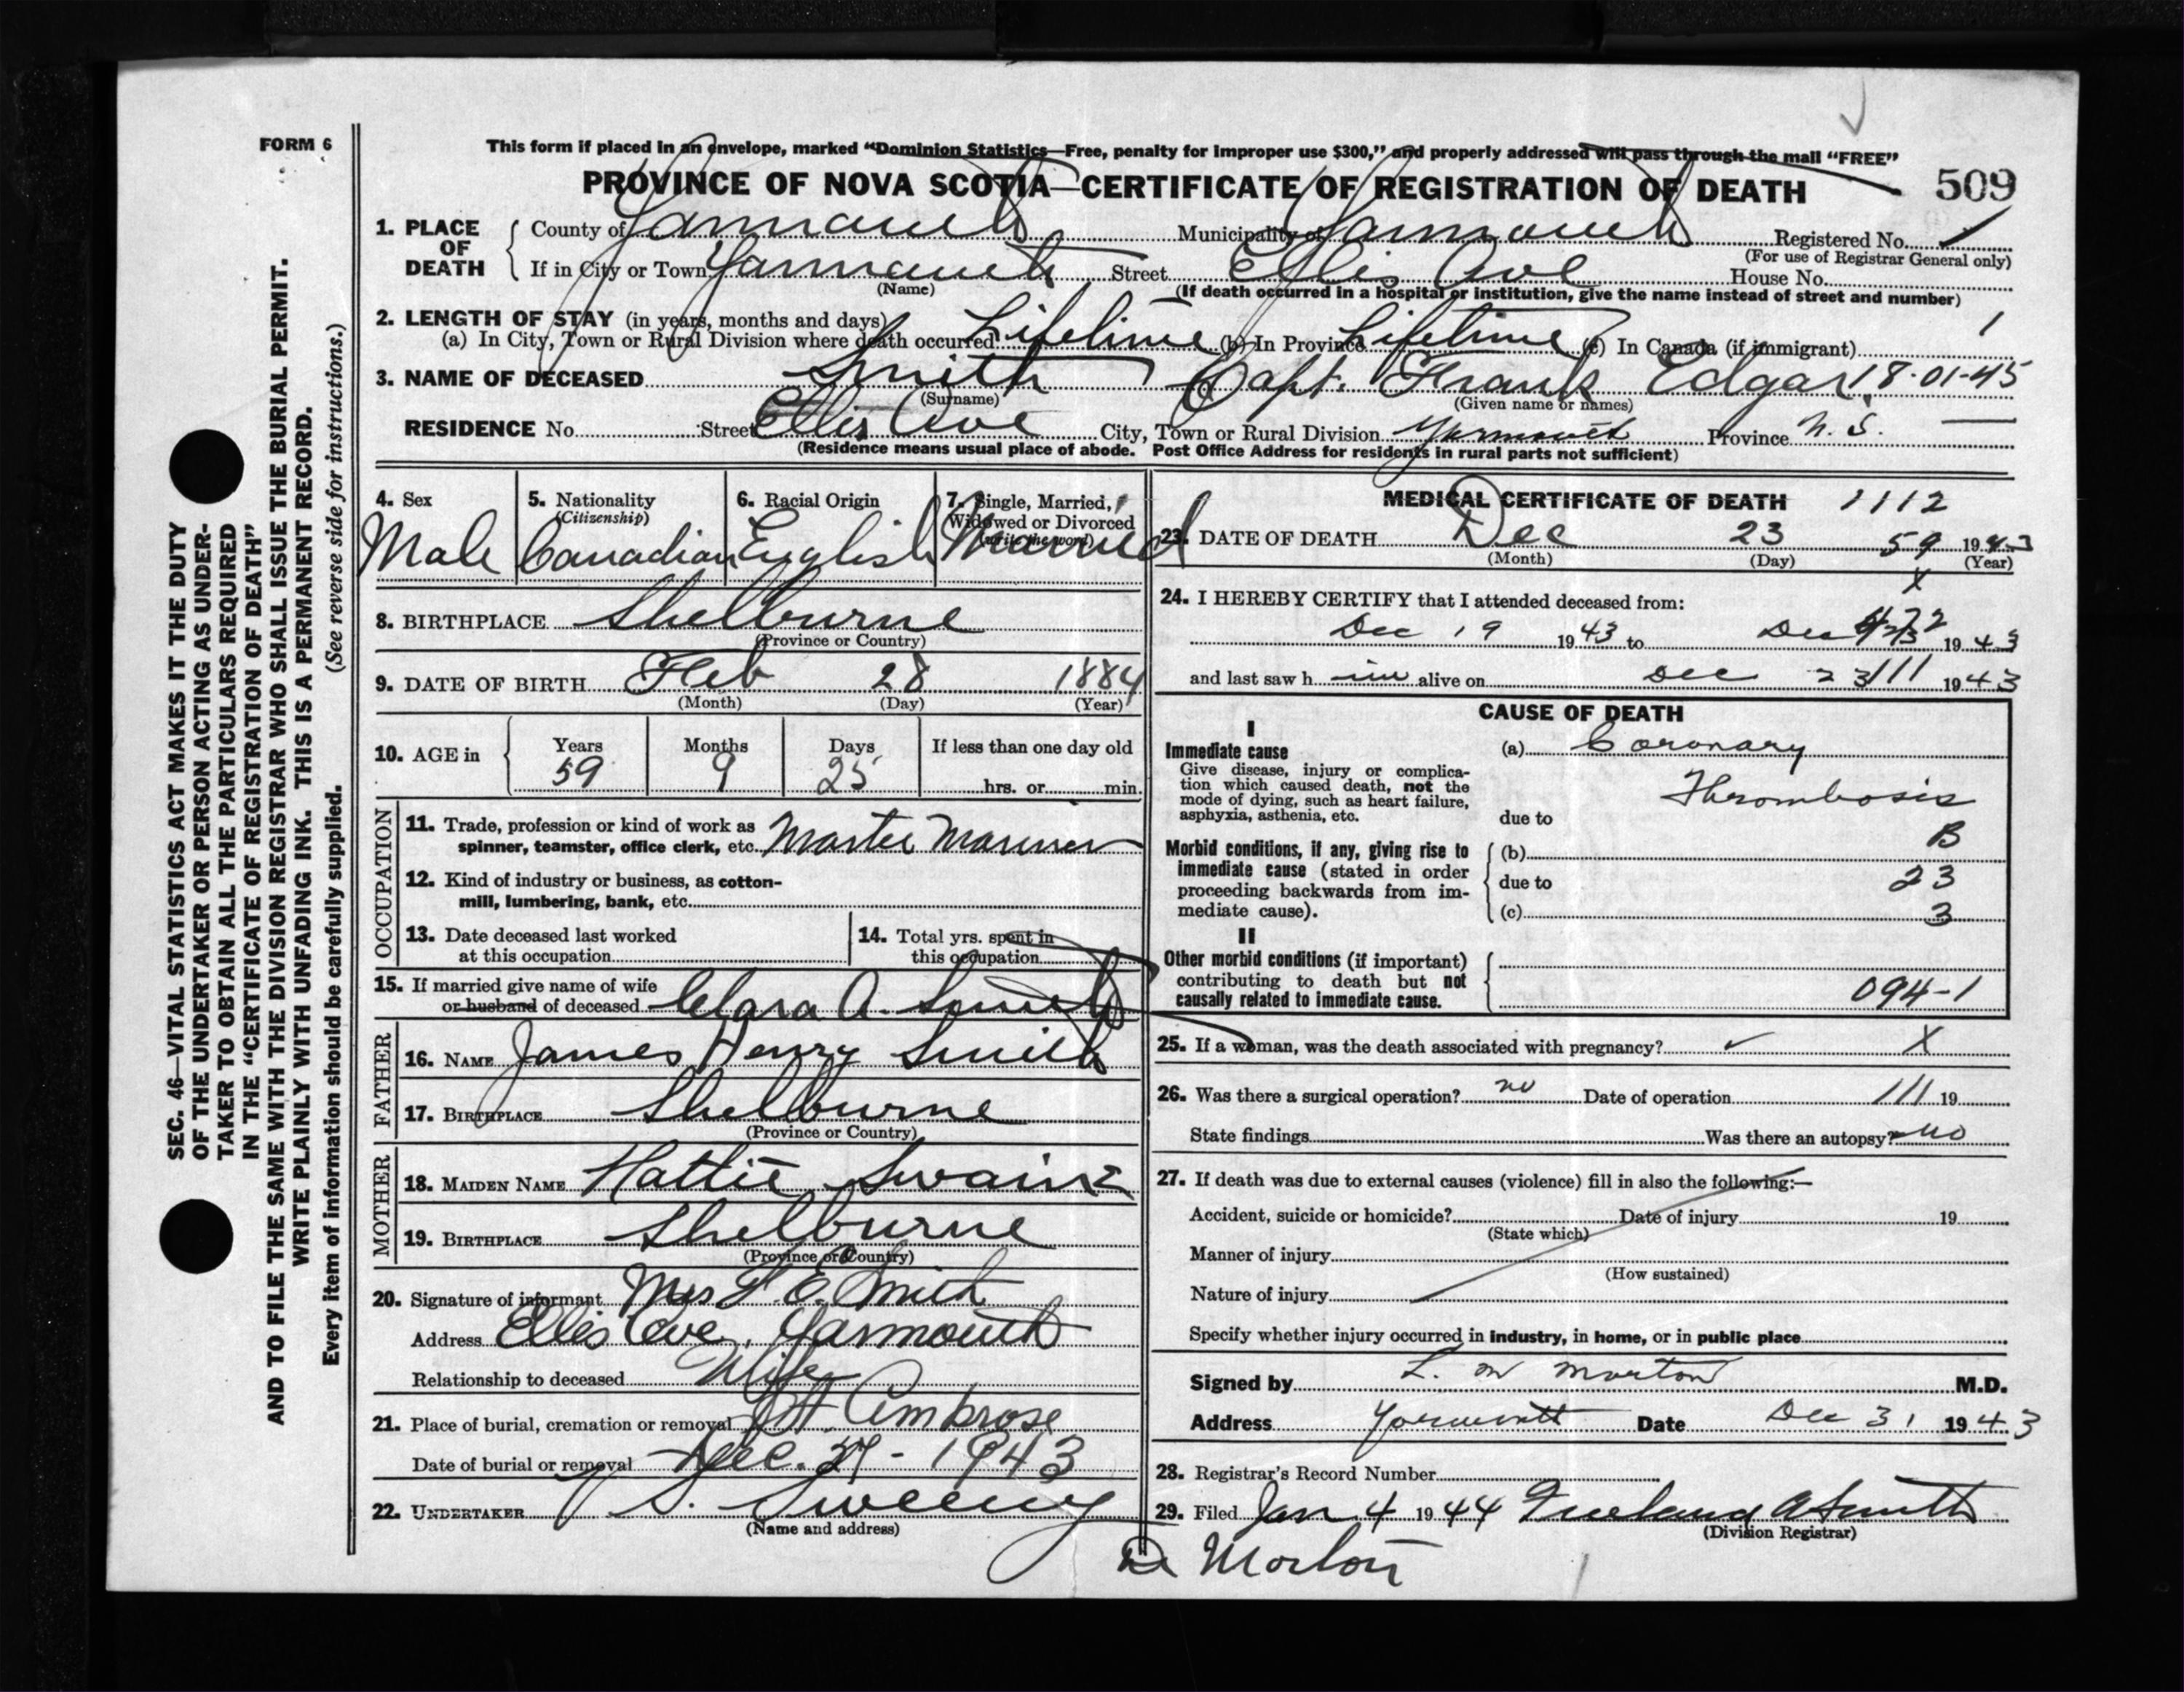 FORM 6
This form if placed in an envelope, marked “Dominion Statistics—Free, penalty for improper use $300,” and properly addressed will pass through the mail “FREE”
PROVINCE OF NOVA SCOTIA—CERTIFICATE OF REGISTRATION OF DEATH 509
1. PLACE OF DEATH County of Yarmouth Municipality of Yarmouth Registered No.
(For use of Registrar General only)
If in City or Town Yarmouth Street Ellis Ave House No.
(Name) (If death occurred in a hospital or institution, give the name instead of street and number)
2. LENGTH OF STAY (in years, months and days) 1
(a) In City, Town or Rural Division where death occurred Lifetime (b) In Province Lifetime (c) In Canada (if immigrant)
3. NAME OF DECEASED Smith Capt. Frank Edgar 18-01-45
(Surname) (Given name or names)
RESIDENCE No. Street Ellis Ave City, Town or Rural Division Yarmouth Province N. S.
(Residence means usual place of abode. Post Office Address for residents in rural parts not sufficient)
4. Sex 5. Nationality 6. Racial Origin 7. Single, Married,
(Citizenship) Widowed or Divorced
(write the word)
Male Canadian English Married
8. BIRTHPLACE Shelburne
(Province or Country)
9. DATE OF BIRTH Feb 28 1884
(Month) (Day) (Year)
10. AGE in Years Months Days If less than one day old
59 9 25 hrs. or min.
OCCUPATION
11. Trade, profession or kind of work as
spinner, teamster, office clerk, etc. Master Mariner
12. Kind of industry or business, as cotton-
mill, lumbering, bank, etc.
13. Date deceased last worked
at this occupation
14. Total yrs. spent in
this occupation
15. If married give name of wife
or husband of deceased Clara A. Smith
FATHER
16. NAME James Henry Smith
17. BIRTHPLACE Shelburne
(Province or Country)
MOTHER
18. MAIDEN NAME Hattie Swaine
19. BIRTHPLACE Shelburne
(Province or Country)
20. Signature of informant Mrs F. E. Smith
Address Ellis Ave, Yarmouth
Relationship to deceased Wife
21. Place of burial, cremation or removal Ambrose
Date of burial or removal Dec. 27 - 1943
22. UNDERTAKER V. S. Sweeny
(Name and address)
MEDICAL CERTIFICATE OF DEATH 1112
23. DATE OF DEATH Dec 23 59 1943
(Month) (Day) (Year)
X
24. I HEREBY CERTIFY that I attended deceased from:
Dec 19 1943 to Dec 1943
and last saw him alive on Dec 23 111 1943
CAUSE OF DEATH
I
Immediate cause (a) Coronary
Give disease, injury or complica-
tion which caused death, not the
mode of dying, such as heart failure,
asphyxia, asthenia, etc. due to
Thrombosis
B
Morbid conditions, if any, giving rise to (b)
immediate cause (stated in order due to 23
proceeding backwards from im-
mediate cause). (c) 3
II
Other morbid conditions (if important)
contributing to death but not
causally related to immediate cause. 094-1
25. If a woman, was the death associated with pregnancy? X
26. Was there a surgical operation? no Date of operation 111 19
State findings Was there an autopsy? no
27. If death was due to external causes (violence) fill in also the following:—
Accident, suicide or homicide? Date of injury 19
(State which)
Manner of injury
(How sustained)
Nature of injury
Specify whether injury occurred in industry, in home, or in public place
Signed by L. M Morton M.D.
Address Yarmouth Date Dec 31 1943
28. Registrar's Record Number
29. Filed Jan 4 1944 Freeland A Smith
(Division Registrar)
Dr Morton
SEC. 46—VITAL STATISTICS ACT MAKES IT THE DUTY
OF THE UNDERTAKER OR PERSON ACTING AS UNDER-
TAKER TO OBTAIN ALL THE PARTICULARS REQUIRED
IN THE “CERTIFICATE OF REGISTRATION OF DEATH”
AND TO FILE THE SAME WITH THE DIVISION REGISTRAR WHO SHALL ISSUE THE BURIAL PERMIT.
WRITE PLAINLY WITH UNFADING INK. THIS IS A PERMANENT RECORD.
Every item of information should be carefully supplied. (See reverse side for instructions.)